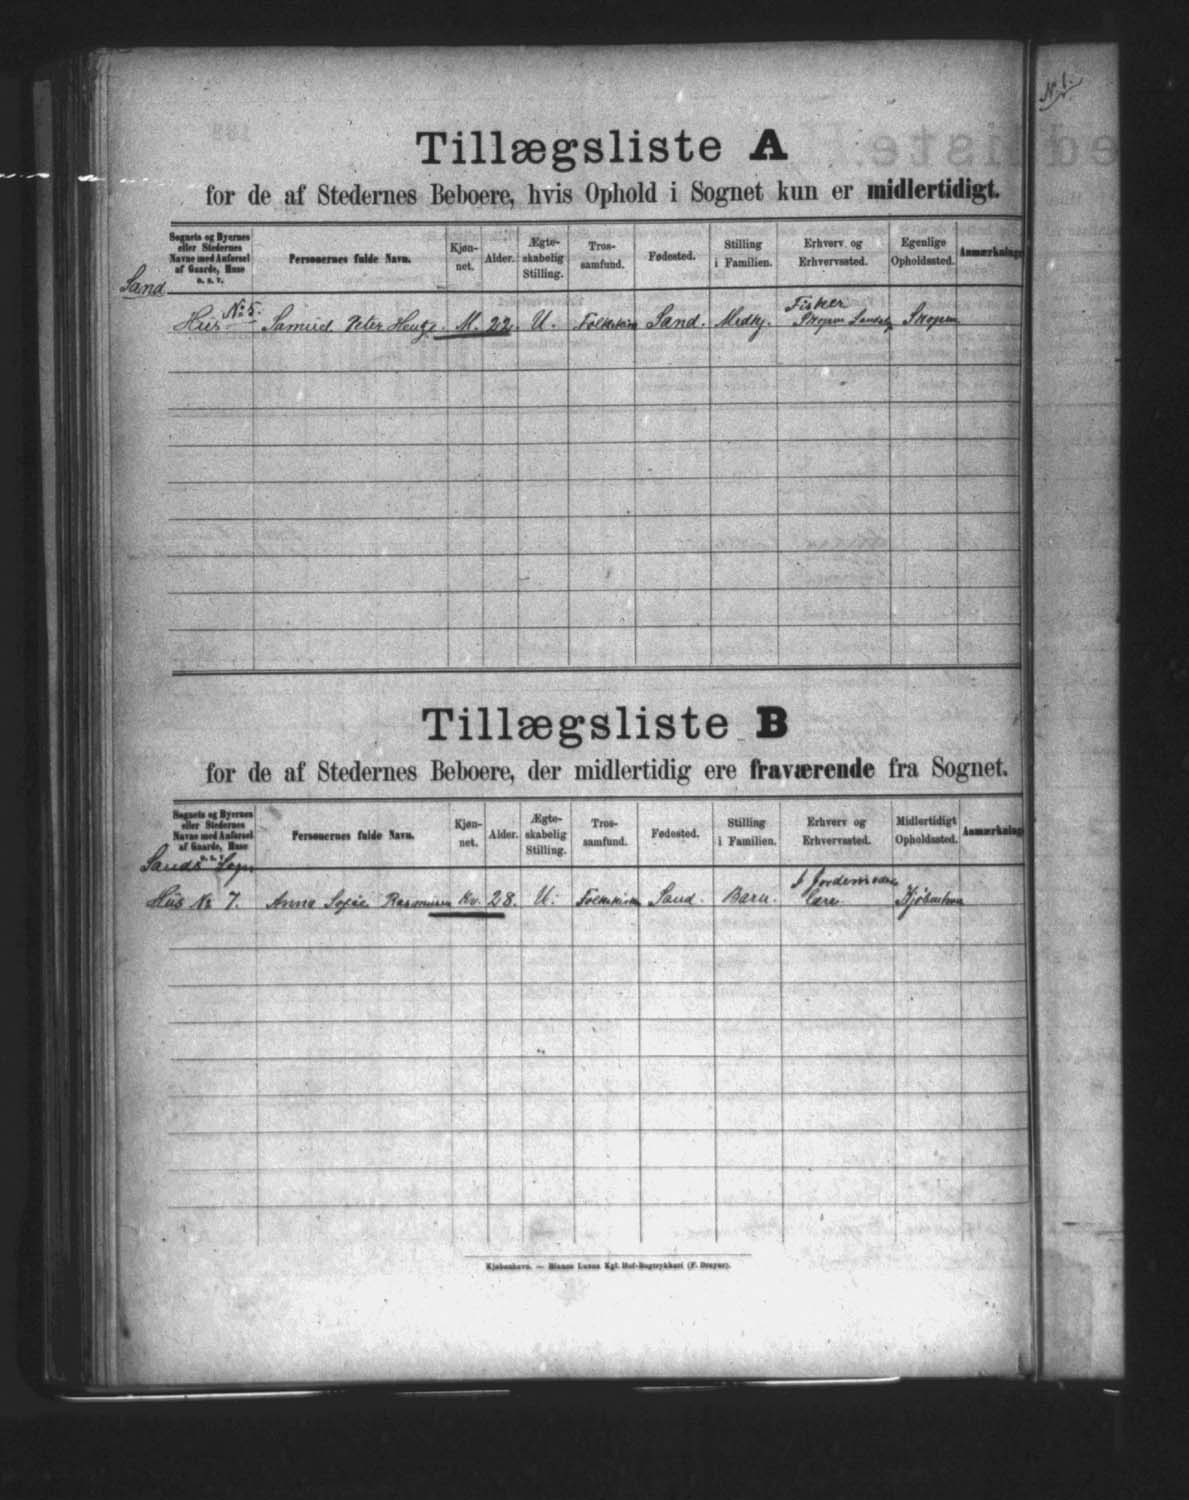 N. 1.
Tillægsliste A
for de af Stedernes Beboere, hvis Ophold i Sognet kun er midlertidigt.
Sognets og Byernes eller Stedernes Navne med Anførsel af Gaarde, Huse o. s. v.
Personernes fulde Navn.
Kjøn-net.
Alder.
Ægte-skabelig Stilling.
Tros-samfund.
Fødested.
Stilling i Familien.
Erhverv og Erhvervssted.
Egenlige Opholdssted.
Anmærkninge
Sand
Hus No 5. Samuel Peter M. 22. U. Folkekirken Sand. Medhj. Fisker Skopen Skopen
Tillægsliste B
for de af Stedernes Beboere, der midlertidig ere fraværende fra Sognet.
Sognets og Byernes eller Stedernes Navne med Anførsel af Gaarde, Huse o. s. v.
Personernes fulde Navn.
Kjøn-net.
Alder.
Ægte-skabelig Stilling.
Tros-samfund.
Fødested.
Stilling i Familien.
Erhverv og Erhvervssted.
Midlertidigt Opholdssted.
Anmærkninge
Sands Sogn
Hus No 7. Anna Sofie Rasmussen Kv. 28. U. Folkekirken Sand. Barn. I Jordemoder lære. Kjøbenhavn
Kjøbenhavn. — Bianco Lunos Kgl. Hof-Bogtrykkeri (F. Dreyer).